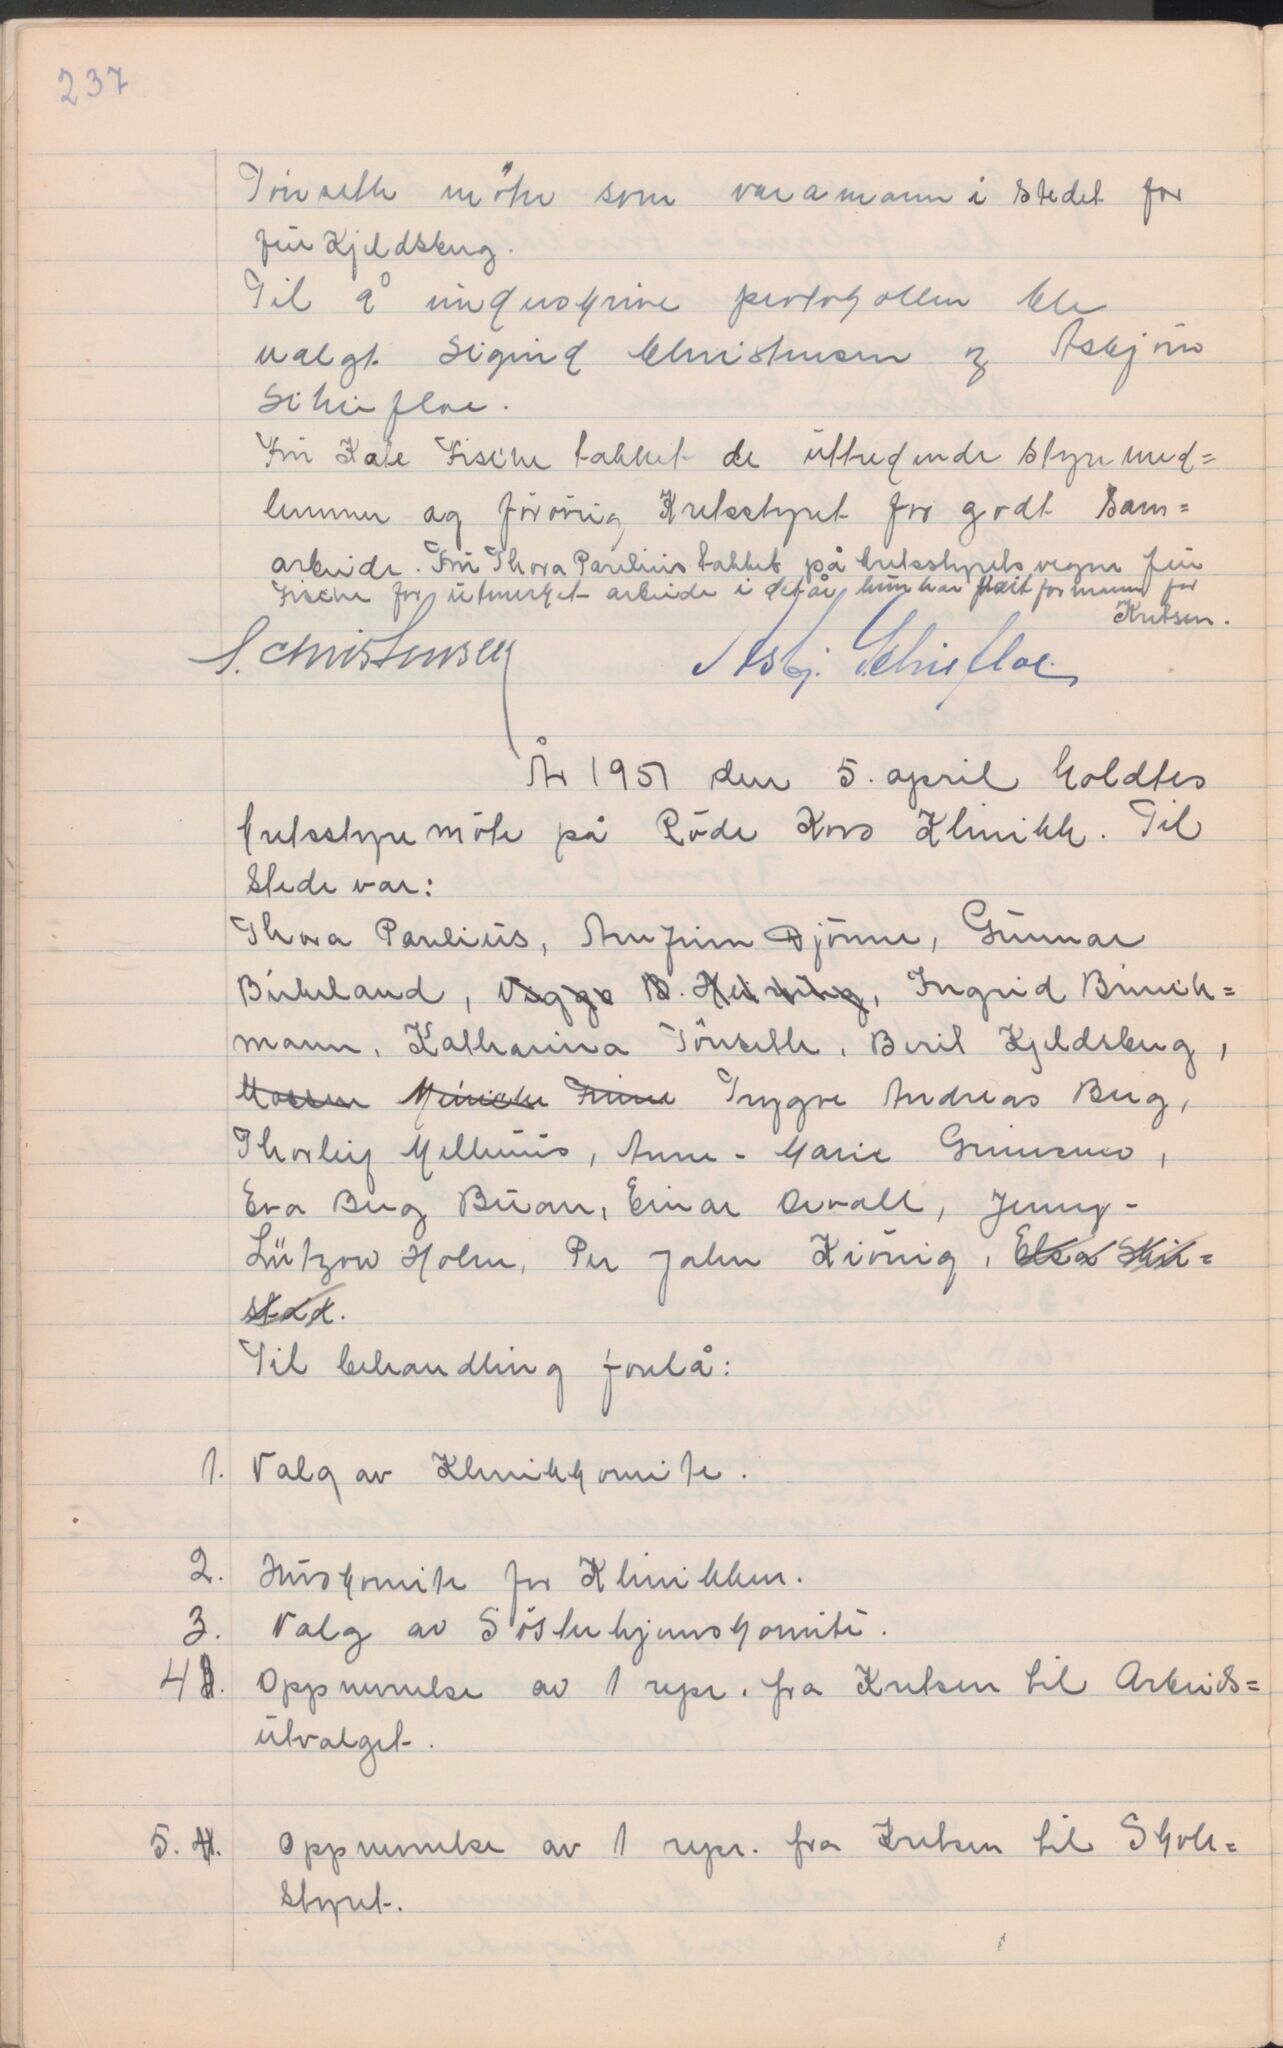 237
Tönseth möte som varamann i stedet for
frü Kjeldsberg.
Til å ünderskrive protokollen ble
valgt Sigurd Christensen og Asbjörn
Schiefloe.
Frü Kate Fische takket de üttredende styremed=
lemmer og förövrig Kretsstyret for godt sam=
arbeide. Frü Thora Paulius takket på kretsstyrets vegne frü
Fische for ütmerket arbeide i det år hün har vært formann for
Kretsen.
S. Christensen Asbj. Schiefloe.
År 1951 den 5. april holdtes
kretsstyremöte på Röde Kors Klinikk. Til
stede var:
Thora Paulius, Arnfinn Djönne, Günnar
Birkeland, Viggo B. Heining, Ingrid Brinch=
mann, Katharina Tönseth, Beril Kjeldsberg,
Mossen Trygve Andreas Berg,
Thorleif Mellüüs, Anne-Marie
Eva Berg Büan, Einar Orvall, Jenny-
Lützow Holm, Per John Kiönig, Elsa Skik=
stad.
Til behandling forelå:
1. Valg av Klinikkomite.
2. Hüskomite for Klinikken.
3. Valg av Sösterhjemskomite.
4. Oppnevnelse av 1 repr. fra Kretsen til Arbeids=
ütvalget.
5. 4. Oppnevnelse av 1 repr. fra Kretsen til Skole=
styret.